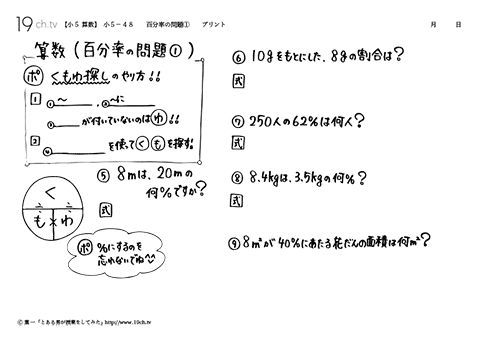 19ch.tv 【小5 算数】 小5-48 百分率の問題① プリント 月 日
算数(百分率の問題①)
ポ くもわ探しのやり方!!
1 ①____~、②____~に
③____が付いていないのはわ!!
2 ④____を使ってくもを探す!
く
÷ ÷
も×わ
⑤ 8mは、20mの
何%ですか?
式
ポ %にするのを
忘れないでね
⑥ 10gをもとにした、8gの割合は?
式
⑦ 250人の62%は何人?
式
⑧ 8.4kgは、3.5kgの何%?
式
⑨ 8m²が40%にあたる花だんの面積は何m²?
©葉一「とある男が授業をしてみた」http://www.19ch.tv